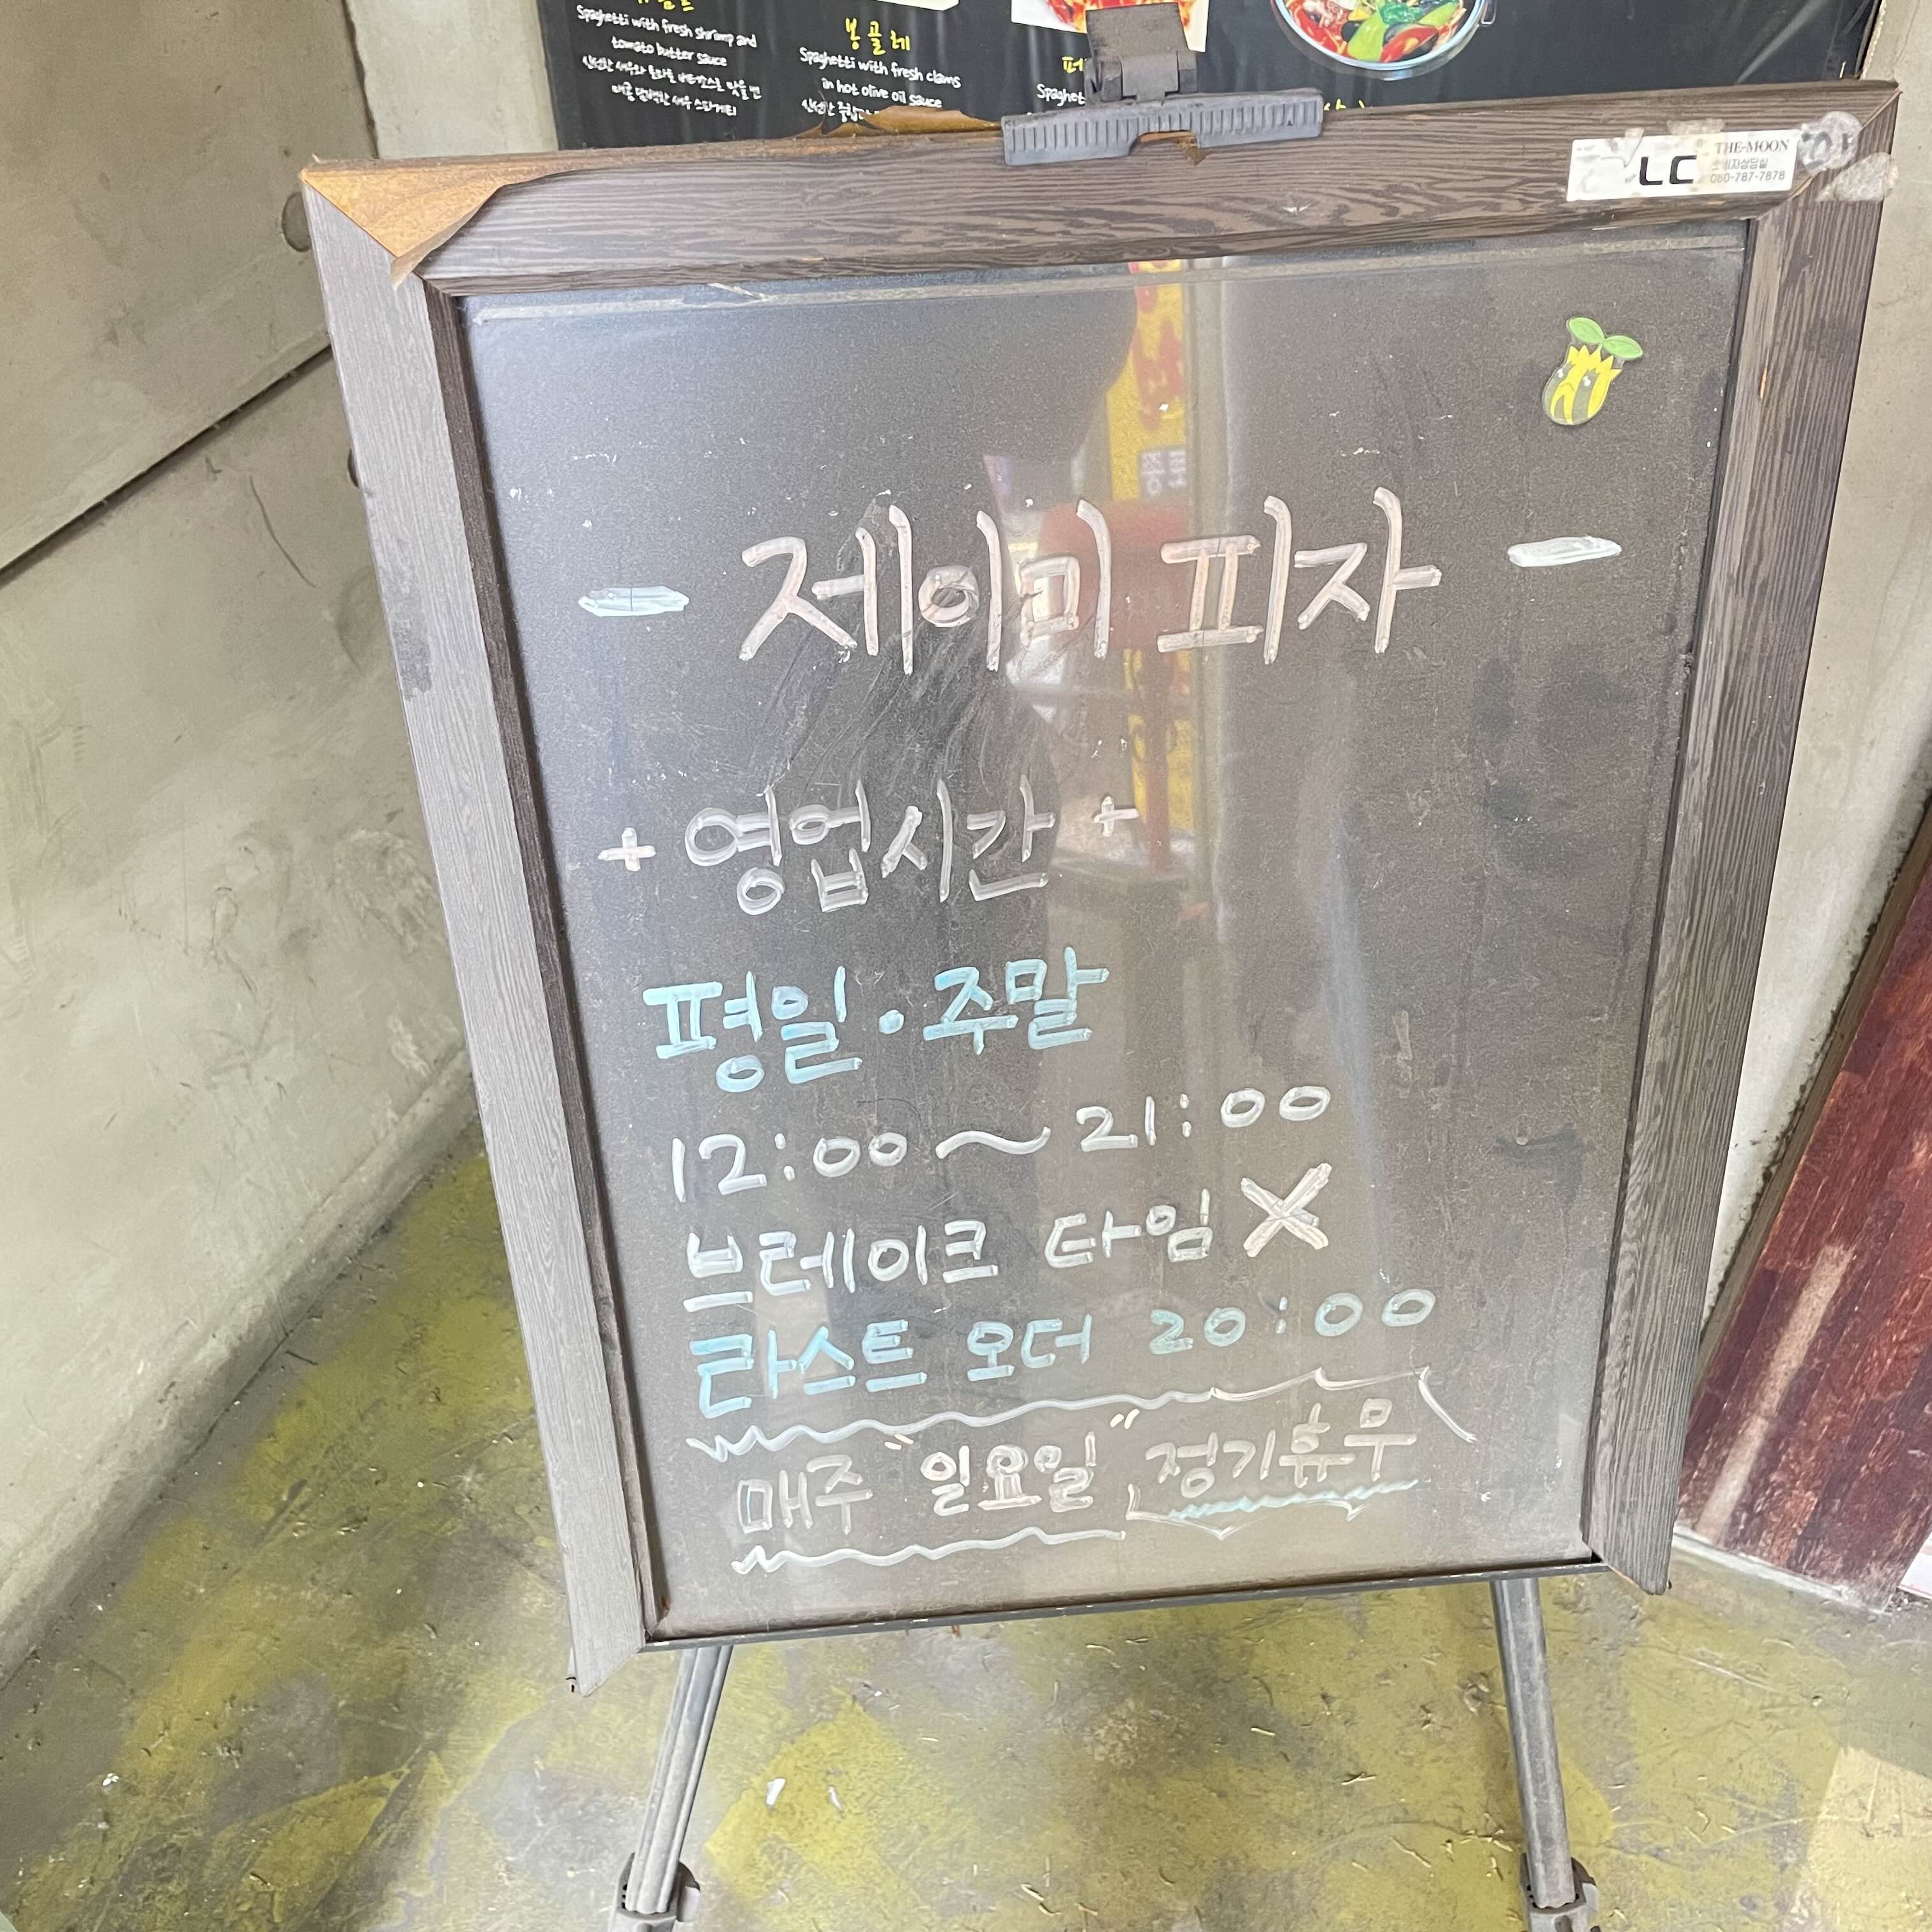 Spaghetti with fresh shrimp and
tomato butter sauce
봉골레
Spaghetti with fresh clams
in hot olive oil sauce
THE-MOON
080-787-7878
- 제이미 피자 -
+ 영업시간 +
평일 · 주말
12:00 ~ 21:00
브레이크 타임 X
라스트 오더 20:00
매주 "일요일" 정기휴무